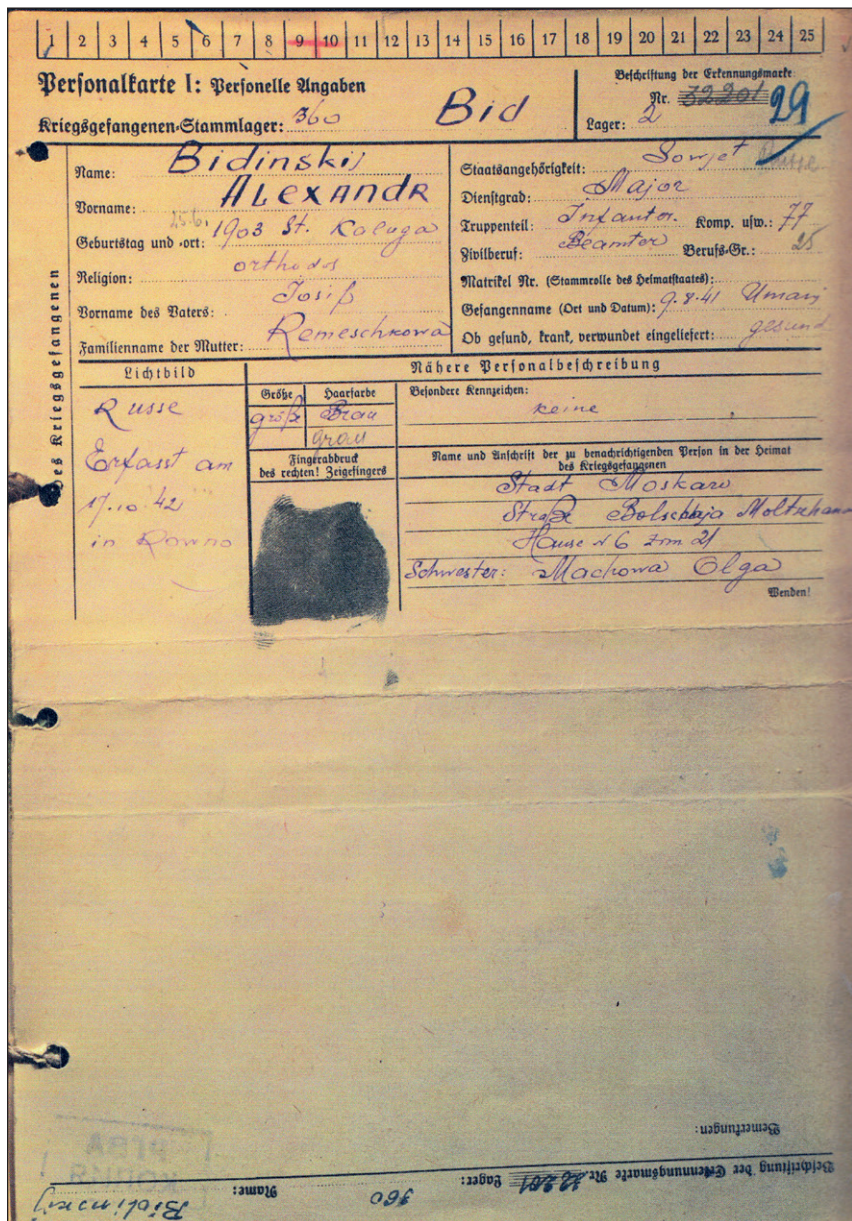 1 2 3 4 5 6 7 8 9 10 11 12 13 14 15 16 17 18 19 20 21 22 23 24 25
Personalkarte I: Personelle Angaben
Kriegsgefangenen-Stammlager: 360
Bid
Beschriftung der Erkennungsmarke
Nr. 32201 29
Lager: 2
des Kriegsgefangenen
Name: Bidinskij
Vorname: ALEXANDR
Geburtstag und -ort: 25.6. 1903 St. Kaluga
Religion: orthodox
Vorname des Vaters: Josif
Familienname der Mutter: Remeschkowa
Staatsangehörigkeit: Sowjet Russe
Dienstgrad: Major
Truppenteil: Infantor. Komp. usw.: 77
Zivilberuf: Beamter Berufs-Gr.: 25
Matrikel Nr. (Stammrolle des Heimatstaates):
Gefangenname (Ort und Datum): 9.8.41 Umanj
Ob gesund, krank, verwundet eingeliefert: gesund
Lichtbild
Russe
Erfasst am
17.10.42
in Rowno
Nähere Personalbeschreibung
Größe Haarfarbe
größ Brau
grau
Fingerabdruck
des rechten! Zeigefingers
Besondere Kennzeichen:
keine
Name und Anschrift der zu benachrichtigenden Person in der Heimat
des Kriegsgefangenen
Stadt Moskau
Straße Bolschaja
Hause N 6 Zim 21
Schwester: Machowa Olga
Wenden!
Bemerkungen:
Beschriftung der Erkennungsmarke Nr. 32201 Lager: 360 Name: Bidinskij
РГВА
КОПИЯ